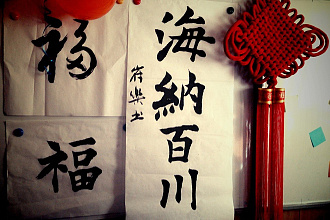 福
福
海納百川
符樂士